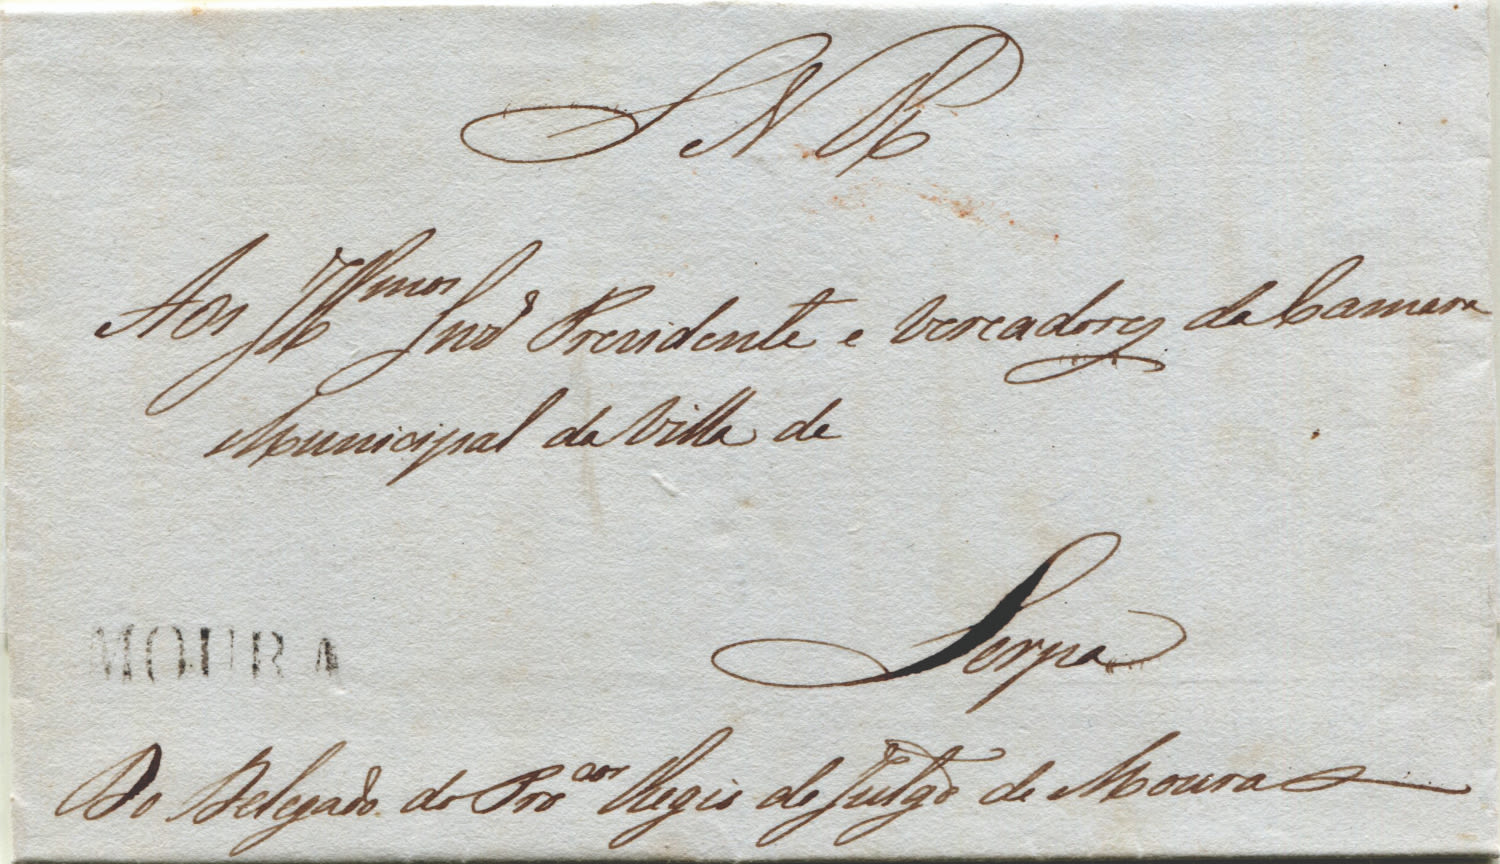 S N R
Aos Illmos Snrs Presidente e Vereadores da Camara
Municipal da Villa de
Serpa
MOURA
Do Delegado do Procor Regio do Julgdo de Moura